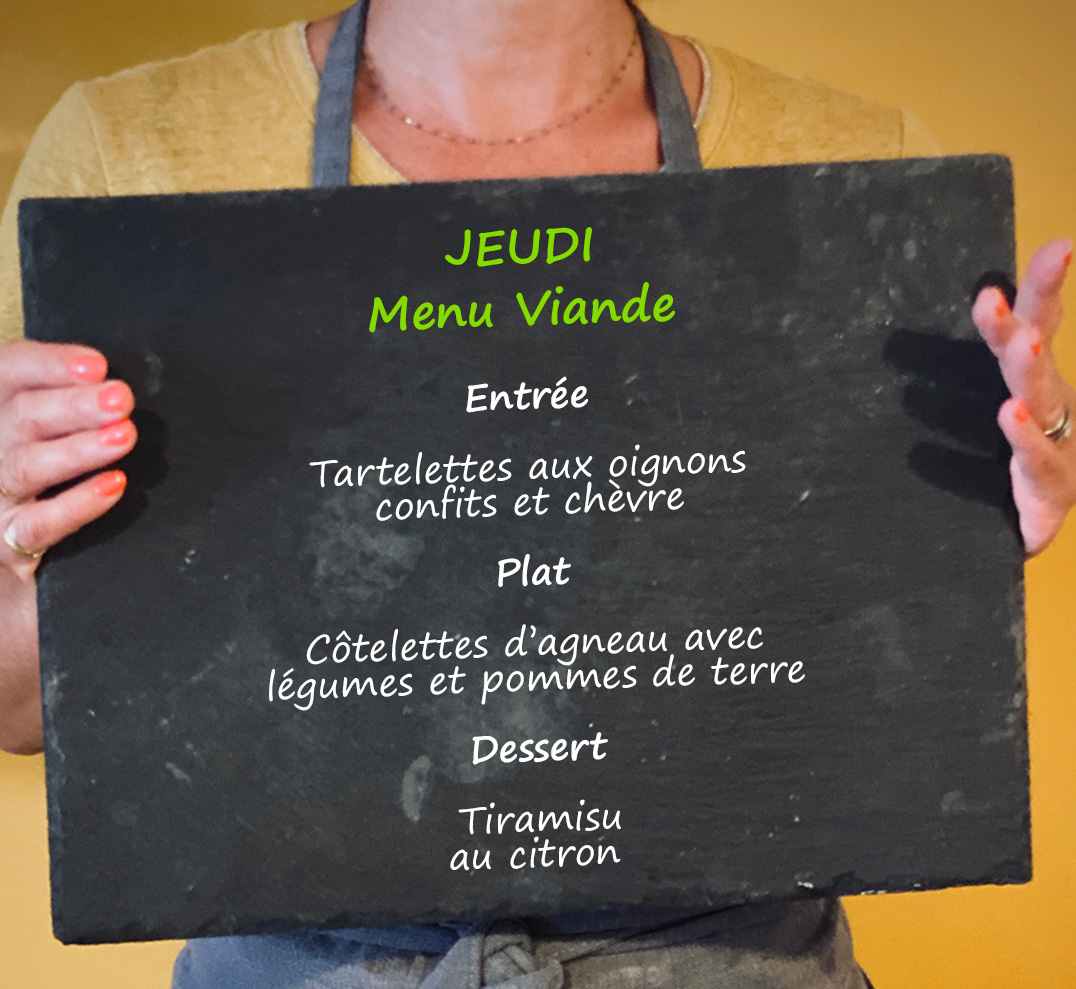 JEUDI
Menu Viande
Entrée
Tartelettes aux oignons
confits et chèvre
Plat
Côtelettes d’agneau avec
légumes et pommes de terre
Dessert
Tiramisu
au citron